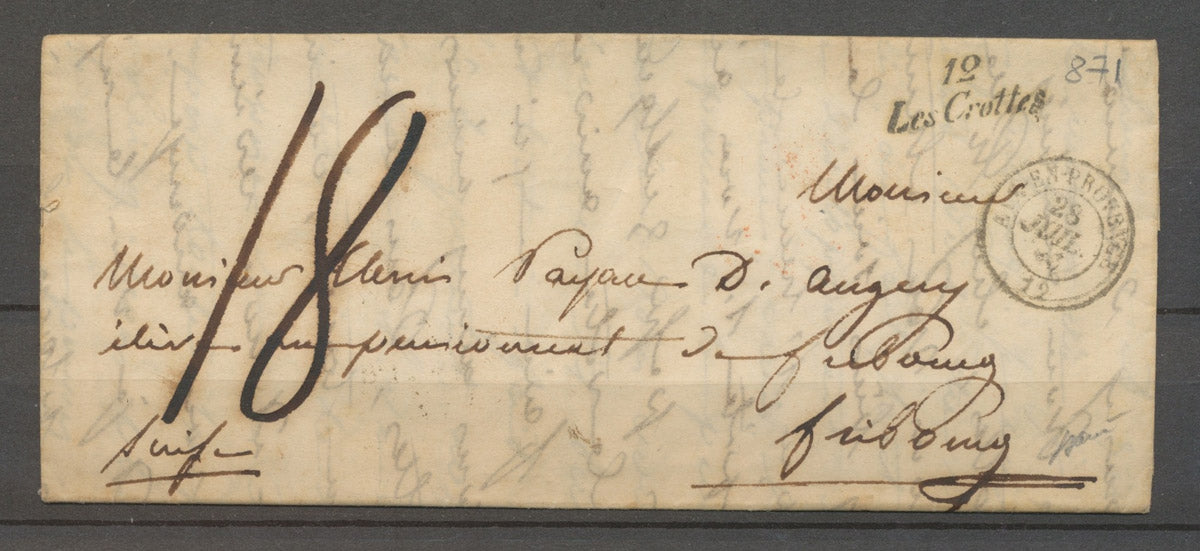 12
Les Crottes
871
Monsieur
18
AIX-EN-PROVENCE
28
JUIL.
12
Monsieur Alexis Payan D. augery
élève au pensionnat de fribourg
Suisse
fribourg